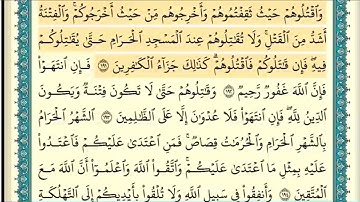 وَاقْتُلُوهُمْ حَيْثُ ثَقِفْتُمُوهُمْ وَأَخْرِجُوهُم مِّنْ حَيْثُ أَخْرَجُوكُمْ ۚ وَالْفِتْنَةُ
أَشَدُّ مِنَ الْقَتْلِ ۚ وَلَا تُقَاتِلُوهُمْ عِندَ الْمَسْجِدِ الْحَرَامِ حَتَّىٰ يُقَاتِلُوكُمْ
فِيهِ ۖ فَإِن قَاتَلُوكُمْ فَاقْتُلُوهُمْ ۗ كَذَٰلِكَ جَزَاءُ الْكَافِرِينَ ١٩١ فَإِنِ انتَهَوْا
فَإِنَّ اللَّهَ غَفُورٌ رَّحِيمٌ ١٩٢ وَقَاتِلُوهُمْ حَتَّىٰ لَا تَكُونَ فِتْنَةٌ وَيَكُونَ
الدِّينُ لِلَّهِ ۖ فَإِنِ انتَهَوْا فَلَا عُدْوَانَ إِلَّا عَلَى الظَّالِمِينَ ١٩٣ الشَّهْرُ الْحَرَامُ
بِالشَّهْرِ الْحَرَامِ وَالْحُرُمَاتُ قِصَاصٌ ۚ فَمَنِ اعْتَدَىٰ عَلَيْكُمْ فَاعْتَدُوا
عَلَيْهِ بِمِثْلِ مَا اعْتَدَىٰ عَلَيْكُمْ ۚ وَاتَّقُوا اللَّهَ وَاعْلَمُوا أَنَّ اللَّهَ مَعَ
الْمُتَّقِينَ ١٩٤ وَأَنفِقُوا فِي سَبِيلِ اللَّهِ وَلَا تُلْقُوا بِأَيْدِيكُمْ إِلَى التَّهْلُكَةِ